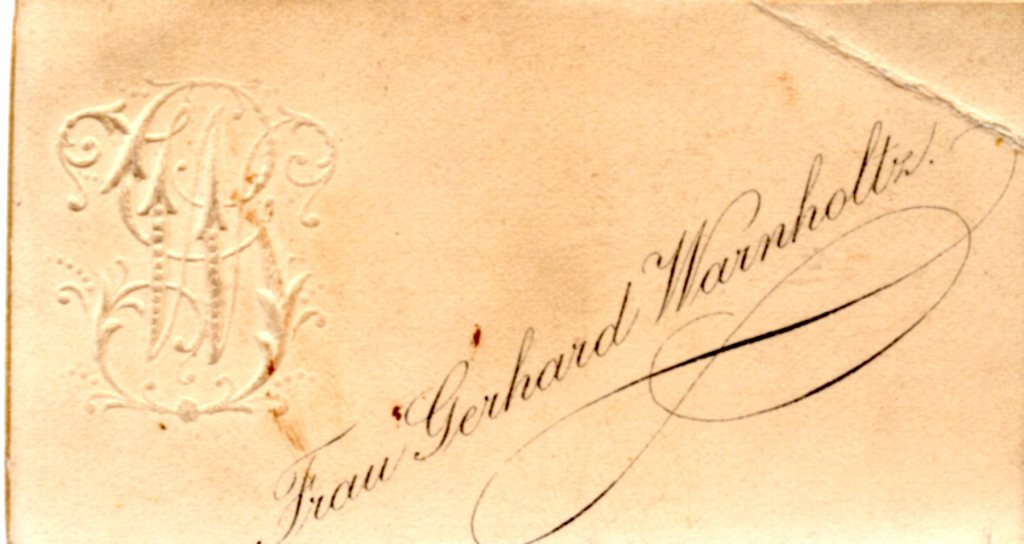 Frau Gerhard Warnholtz.